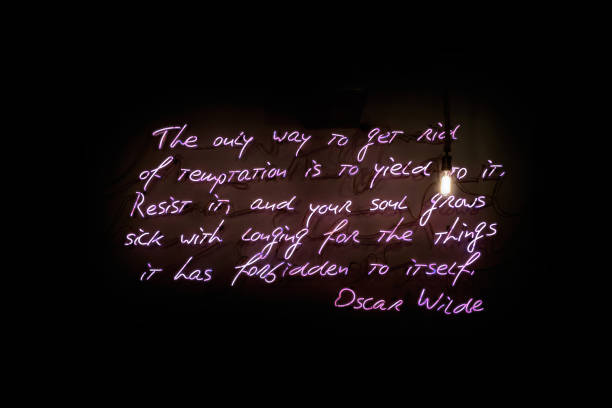 The only way to get rid
of temptation is to yield to it.
Resist it, and your soul grows
sick with longing for the things
it has forbidden to itself.
Oscar Wilde